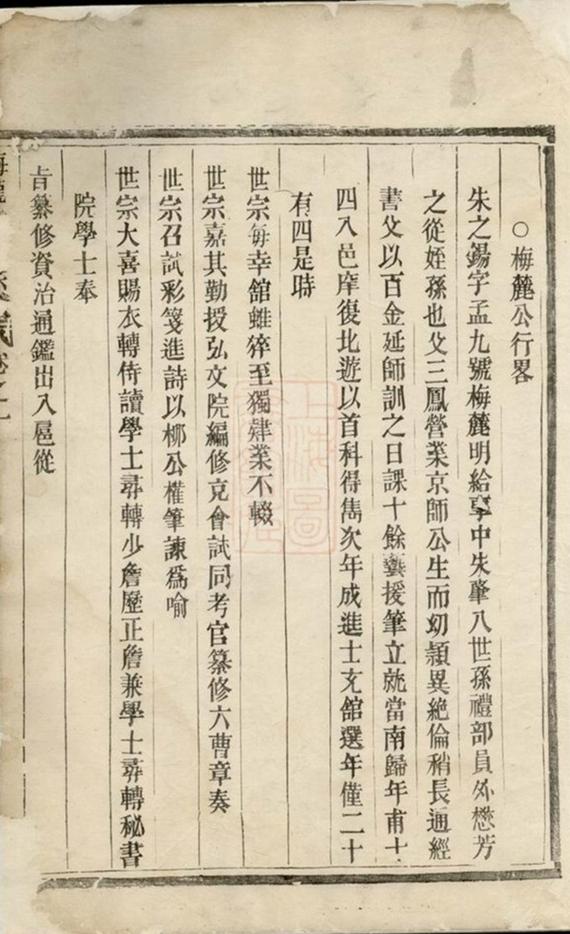 ○梅麓公行畧
朱之錫字孟九號梅麓明給事中朱肇八世孫禮部員外懋芳
之從姪孫也父三鳳營業京師公生而幼穎異絶倫稍長通經
書父以百金延師訓之日課十餘藝援筆立就當南歸年甫十
四入邑庠復北遊以首科得雋次年成進士充館選年僅二十
有四是時
世宗每幸舘雖猝至獨肄業不輟
世宗嘉其勤授弘文院編修充會試同考官纂修六曹章奏
世宗召試彩箋進詩以柳公權筆諫爲喻
世宗大喜賜衣轉侍讀學士尋轉少詹歷正詹兼學士尋轉秘書
院學士奉
旨纂修資治通鑑出入扈從
上海圖